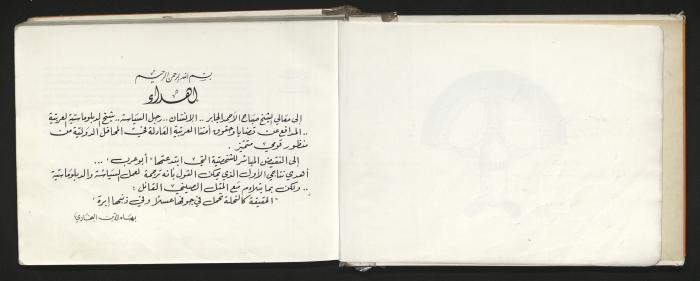 بسم الله الرحمن الرحيم
إهداء
إلى معالي الشيخ صباح الأحمد الجابر .. الإنسان .. رجل السياسة .. شيخ الدبلوماسية العربية
.. المدافع عن قضايا وحقوق أمتنا العربية العادلة في المحافل الدولية من
منظور قومي متميز .
إلى النقيض المباشر للشخصية التي ابتدعتها "أبو عرب" ...
أهدي نتاجي الأول الذي يمكن القول بأنه ترجمة لعمل السياسة والدبلوماسية
.. ولكن بما يتلاءم مع المثل الصيني القائل :
"الحقيقة كالنحلة تحمل في جوفها عسلاً وفي ذنبها إبرة"
بهاء الدين البخاري